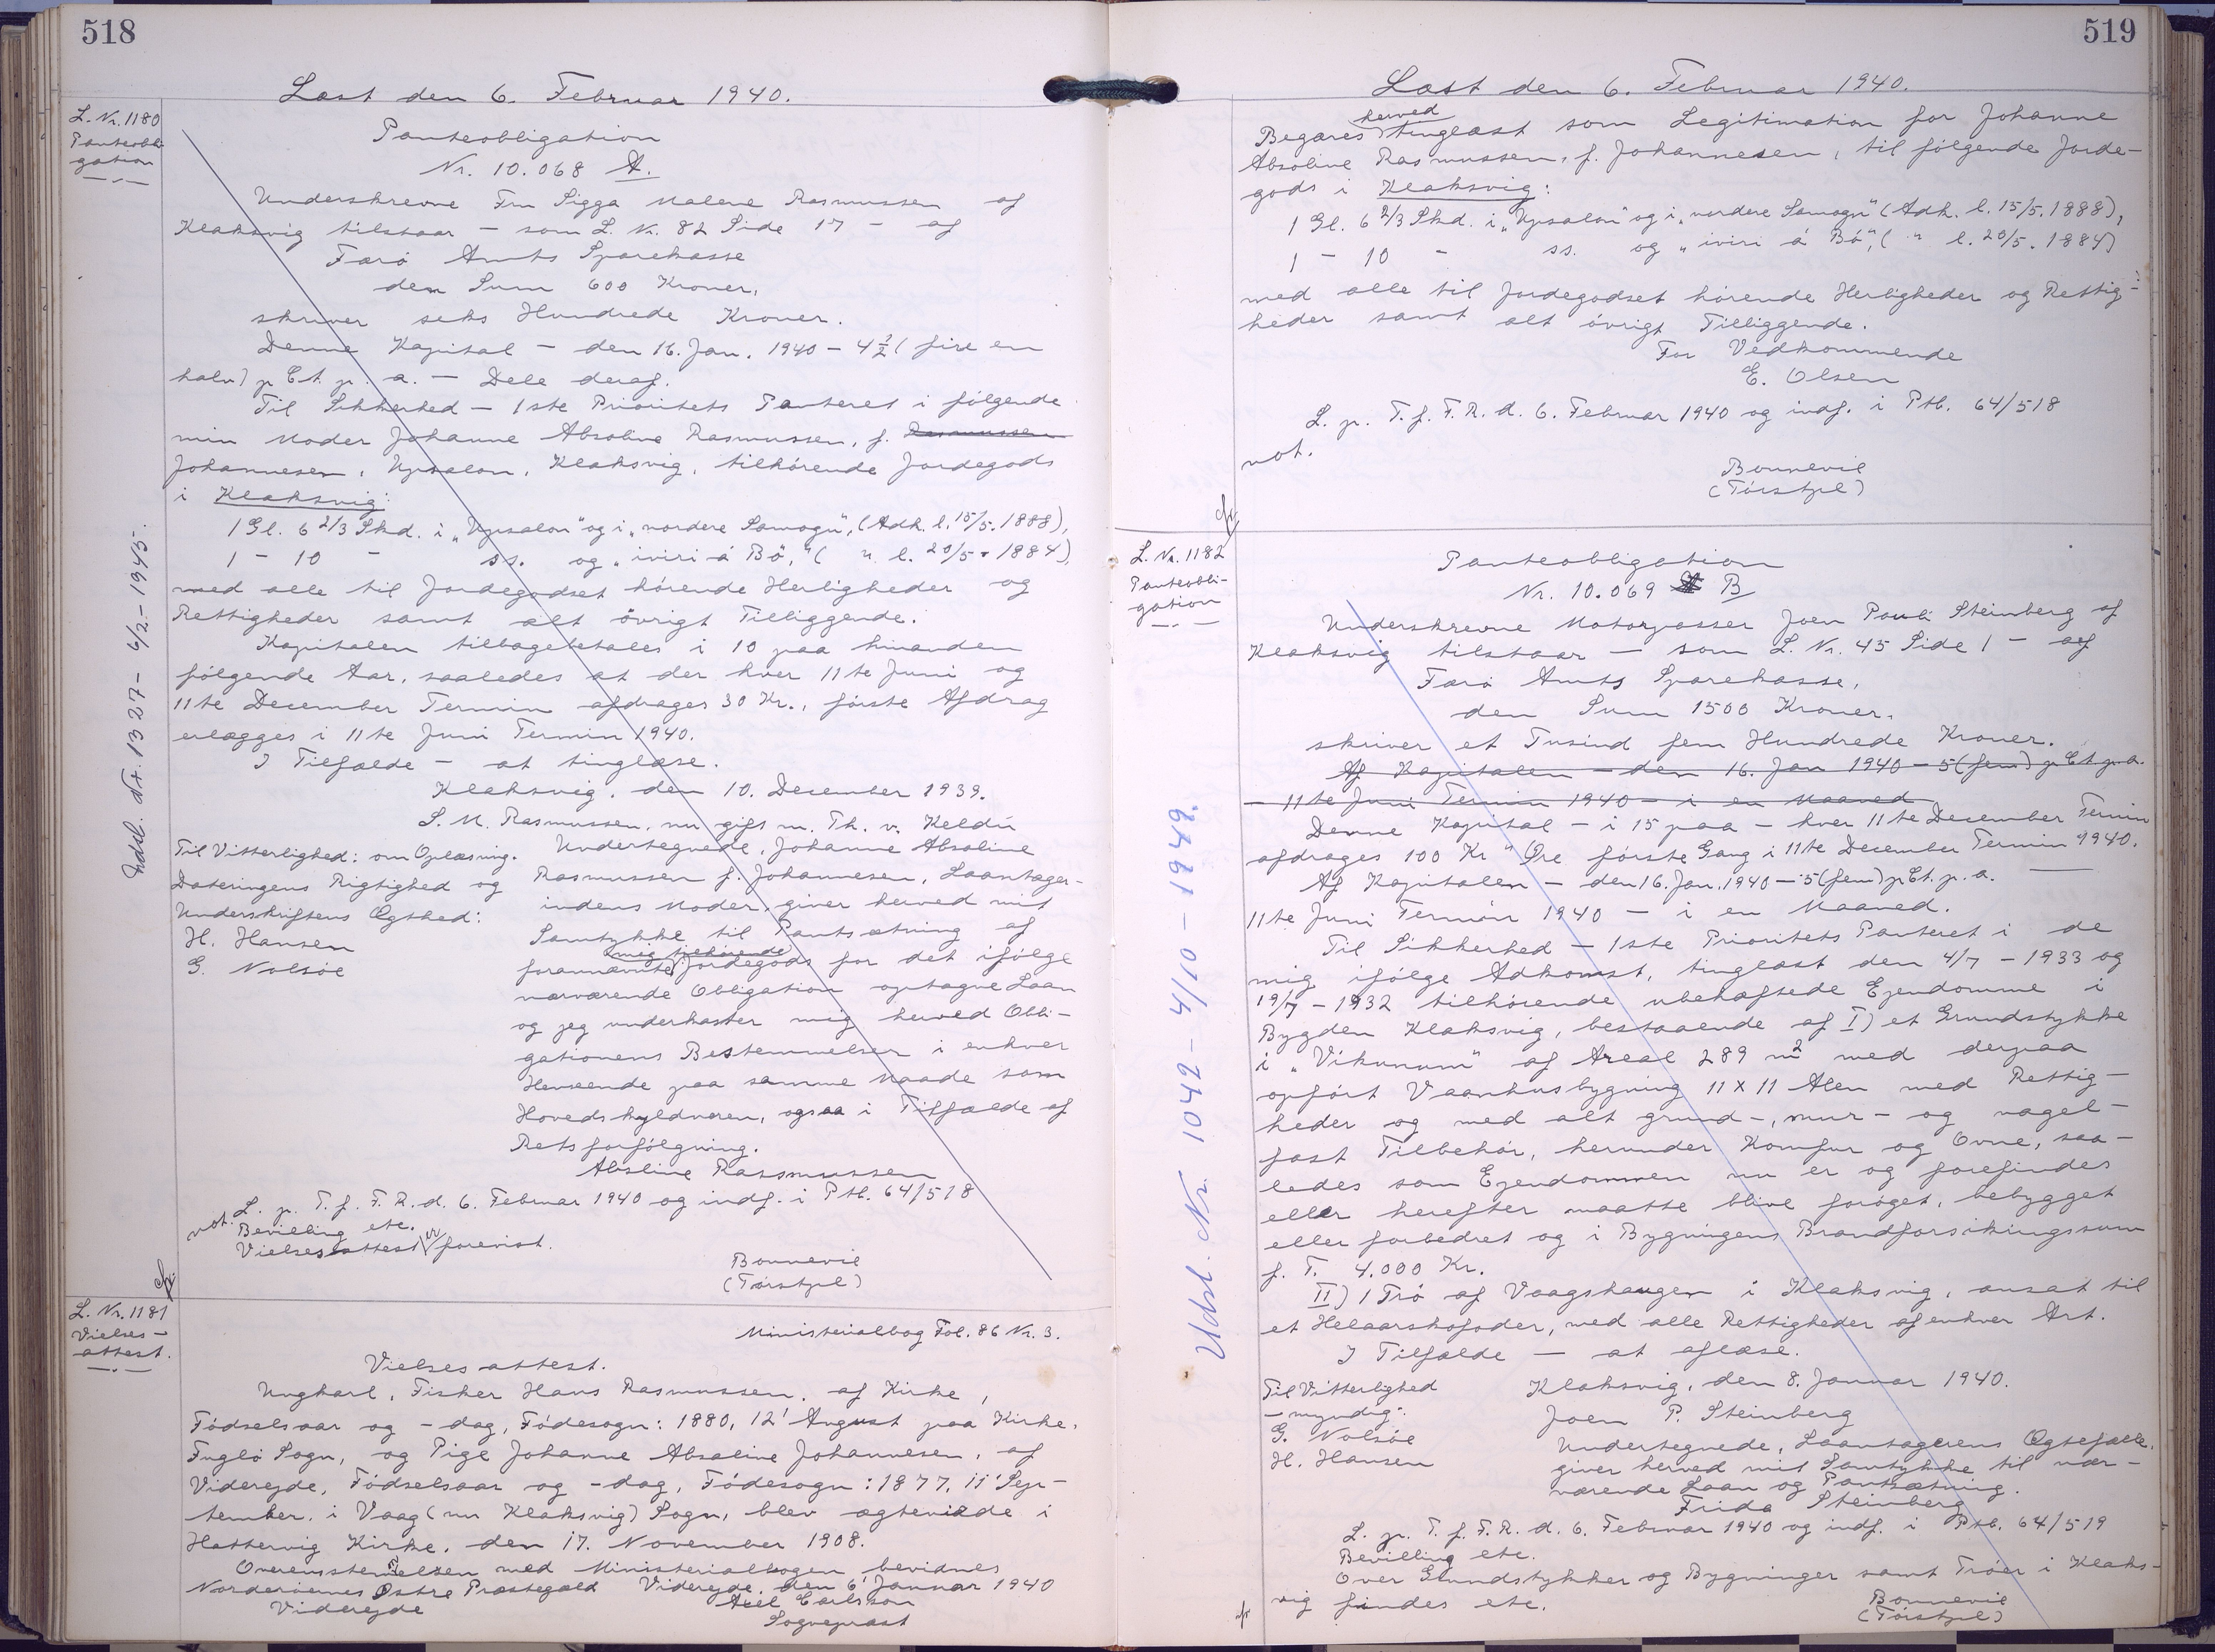 518
Læst den 6. Februar 1940.
L. Nr. 1180
Panteobli-
gation
Panteobligation
Nr. 10.068 A.
Underskrevne Fru Sigga Malene Rasmussen af
Klaksvig tilstaar — som L. Nr. 82 Side 17 — af
Færø Amts Sparekasse
den Sum 600 Kroner,
skriver seks Hundrede Kroner.
Denne Kapital — den 16. Jan. 1940 — 4½ (fire en
halv) p Ct. p. a. — Dele deraf.
Til Sikkerhed — 1ste Prioritets Panteret i følgende
min Moder Johanne Absoline Rasmussen, f. Rasmussen
Johannesen, Upsalon, Klaksvig, tilhørende Jordegods
i Klaksvig:
1 Gl. 6 2/3 Skd. i „Upsalon" og i „nordere Samogn", (Adk. l. 15/5. 1888),
1 — 10 — ss. og „iviri á Bø", ( " l. 20/5 - 1884),
med alle til Jordegodset hørende Herligheder og
Rettigheder samt alt øvrigt Tilliggende.
Kapitalen tilbagebetales i 10 paa hinanden
følgende Aar, saaledes at der hver 11te Juni og
11te December Termin afdrages 30 Kr., første Afdrag
erlægges i 11te Juni Termin 1940.
I Tilfælde — at tinglæse.
Klaksvig, den 10. December 1939.
S. M. Rasmussen, nu gift m. Th. v. Keldu
Til Vitterlighed: om Oplæsning.
Dateringens Rigtighed og
Underskriftens Ægthed:
H. Hansen
G. Nolsøe
Undertegnede, Johanne Absoline
Rasmussen f. Johannesen, Laantager-
indens Moder, giver herved mit
Samtykke til Pantsætning af
mig tilhørende
forannævnte Jordegods for det ifølge
nærværende Obligation optagne Laan
og jeg underkaster mig herved Obli-
gationens Bestemmelser i enhver
Henseende paa samme Maade som
Hovedskyldneren, ogsaa i Tilfælde af
Retsforfølgning.
Absline Rasmussen
L. p. T. f. F. R. d. 6. Februar 1940 og indf. i Ptb. 64/518
not. Bevilling etc.
Vielsesattest er forevist.
Bonnevie
(Tórstpl)
Udsl. Nr. 1327 - 6/2 - 1945.
L. Nr. 1181
Vielses-
attest.
Ministerialbog Fol. 86 Nr. 3.
Vielsesattest.
Ungkarl, Fisker Hans Rasmussen, af Kirke,
Fødselsaar og -dag, Fødesogn: 1880, 12' August paa Kirke,
Fuglø Sogn, og Pige Johanne Absaline Johannesen, af
Viderejde, Fødselsaar og -dag, Fødesogn: 1877, 11' Sep-
tember, i Vaag (nu Klaksvig) Sogn, blev ægteviede i
Hattervig Kirke, den 17. November 1908.
Overensstemmelsen med Ministerialbogen bevidnes
Norderøernes Østre Præstegæld Viderejde, den 6' Januar 1940
Viderejde Axel Carlsson
Sognepræst
519
Læst den 6. Februar 1940.
herved
Begæres tinglæst som Legitimation for Johanne
Absoline Rasmussen, f. Johannesen, til følgende Jorde-
gods i Klaksvig:
1 Gl. 6 2/3 Skd. i „Upsalon" og i „nordere Samogn" (Adk. l. 15/5. 1888),
1 — 10 — ss. og „iviri á Bø", ( " l. 20/5. 1884)
med alle til Jordegodset hørende Herligheder og Rettig-
heder samt alt øvrigt Tilliggende.
For Vedkommende
E. Olsen
L. p. T. f. F. R. d. 6. Februar 1940 og indf. i Ptb. 64/518
not.
Bonnevie
(Tórstpl)
L. Nr. 1182
Panteobli-
gation
Panteobligation
Nr. 10.069 B
Underskrevne Motorpasser Joen Pauli Steinberg af
Klaksvig tilstaar — som L. Nr. 45 Side 1 — af
Færø Amts Sparekasse,
den Sum 1500 Kroner,
skriver et Tusind fem Hundrede Kroner.
Af Kapitalen — den 16. Jan 1940 — 5 (fem) p Ct p. a.
— 11te Juni Termin 1940 — i en Maaned
Denne Kapital — i 15 paa — hver 11te December Termin
afdrages 100 Kr " Øre første Gang i 11te December Termin 9940.
Af Kapitalen — den 16. Jan. 1940 — 5 (fem) p Ct. p. a. —
11te Juni Termin 1940 — i en Maaned.
Til Sikkerhed — 1ste Prioritets Panteret i de
mig ifølge Adkomst, tinglæst den 4/7 - 1933 og
19/7 - 1932 tilhørende ubehæftede Ejendomme i
Bygden Klaksvig, bestaaende af I) et Grundstykke
i „Vikunum" af Areal 289 m2 med derpaa
opført Vaanhusbygning 11 x 11 Alen med Rettig-
heder og med alt grund-, mur- og nagel-
fast Tilbehør, herunder Komfur og Ovne, saa-
ledes som Ejendommen nu er og forefindes
eller herefter maatte blive forøget, bebygget
eller forbedret og i Bygningens Brandforsikringssum
f. T. 4.000 Kr.
II) 1 Trø af Vaagshaugen i Klaksvig, ansat til
et Helaarskofoder, med alle Rettigheder af enhver Art.
I Tilfælde — at aflæse.
Klaksvig, den 8. Januar 1940.
Joen P. Steinberg
Til Vitterlighed
— myndig:
G. Nolsøe
H. Hansen
Undertegnede, Laantagerens Ægtefælle,
giver herved mit Samtykke til nær-
værende Laan og Pantsætning.
Frida Steinberg
L. p. T. f. F. R. d. 6. Februar 1940 og indf. i Ptb. 64/519
Bevilling etc.
Over Grundstykker og Bygninger samt Trøer i Klaks-
vig findes etc.
Bonnevie
(Tórstpl)
Udsl. Nr. 1042 - 4/10 - 1949.